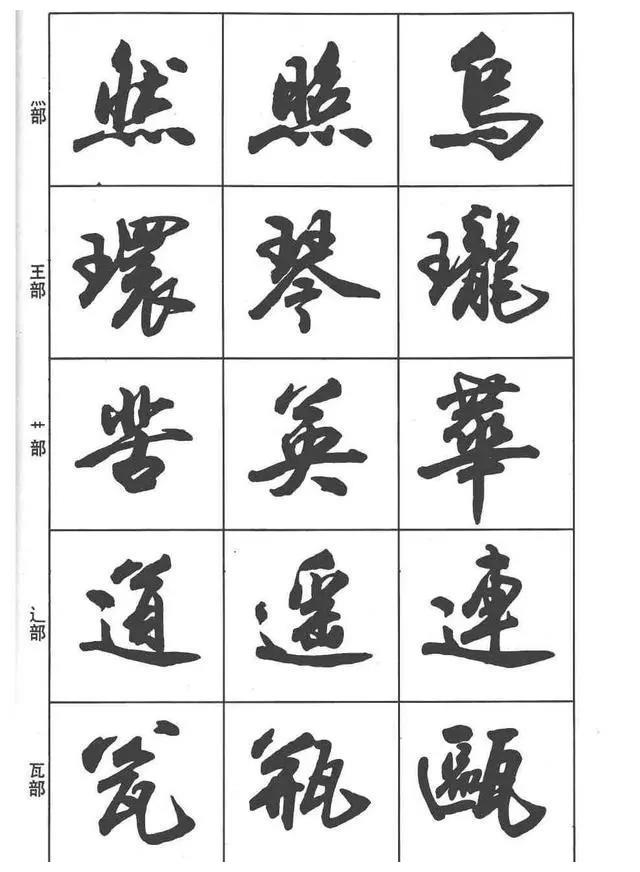 灬部 然 照 烏
王部 環 琴 瓏
艹部 苦 英 華
辶部 道 遥 連
瓦部 瓮 瓶 甌